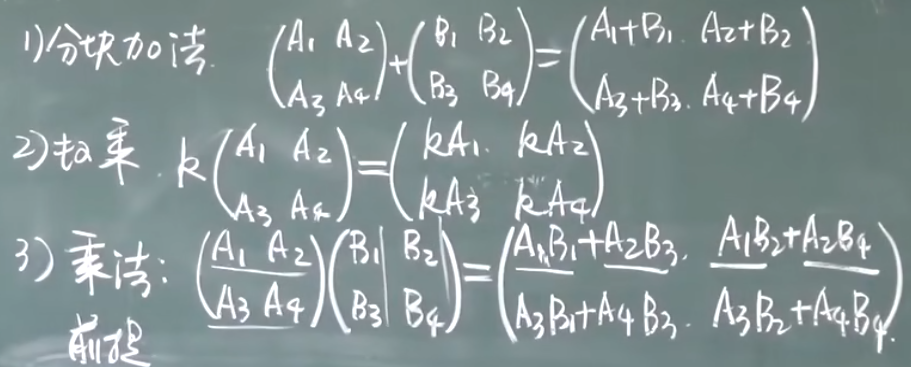 1)分块加法. (A₁ A₂ / A₃ A₄)+(B₁ B₂ / B₃ B₄)=(A₁+B₁. A₂+B₂ / A₃+B₃. A₄+B₄)
2)数乘. k(A₁ A₂ / A₃ A₄)=(kA₁. kA₂ / kA₃ kA₄)
3)乘法: (A₁ A₂ / A₃ A₄)(B₁ B₂ / B₃ B₄)=(A₁B₁+A₂B₃. A₁B₂+A₂B₄ / A₃B₁+A₄B₃. A₃B₂+A₄B₄).
前提